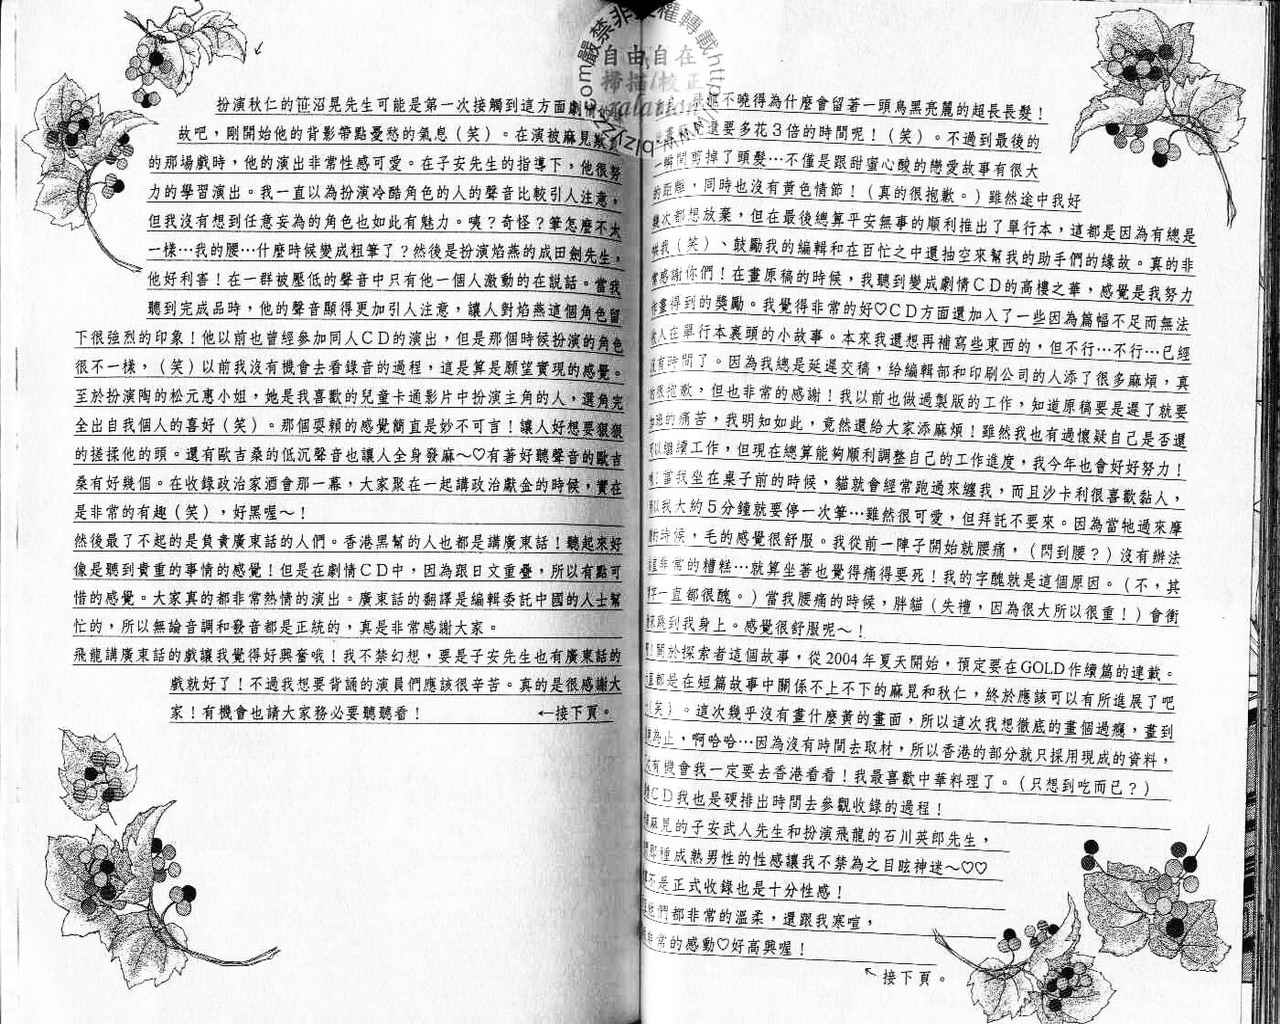 嚴禁非 權轉載
自由自在
掃描/校正
不曉得為什麼會留著一頭烏黑亮麗的超長長髮！
還要多花3倍的時間呢！（笑）。不過到最後的
一瞬間剪掉了頭髮…不僅是跟甜蜜心酸的戀愛故事有很大
的距離，同時也沒有黃色情節！（真的很抱歉。）雖然途中我好
幾次都想放棄，但在最後總算平安無事的順利推出了單行本，這都是因為有總是
我（笑）、鼓勵我的編輯和在百忙之中還抽空來幫我的助手們的緣故。真的非
常感謝你們！在畫原稿的時候，我聽到變成劇情CD的高樓之華，感覺是我努力
作畫得到的獎勵。我覺得非常的好♡CD方面還加入了一些因為篇幅不足而無法
人在單行本裏頭的小故事。本來我還想再補寫些東西的，但不行…不行…已經
沒有時間了。因為我總是延遲交稿，給編輯部和印刷公司的人添了很多麻煩，真
的很抱歉，但也非常的感謝！我以前也做過製版的工作，知道原稿要是遲了就要
的痛苦，我明知如此，竟然還給大家添麻煩！雖然我也有過懷疑自己是否還
可以繼續工作，但現在總算能夠順利調整自己的工作進度，我今年也會好好努力！
當我坐在桌子前的時候，貓就會經常跑過來纏我，而且沙卡利很喜歡黏人，
所以我大約5分鐘就要停一次筆…雖然很可愛，但拜託不要來。因為當牠過來摩
的時候，毛的感覺很舒服。我從前一陣子開始就腰痛，（閃到腰？）沒有辦法
非常的糟糕…就算坐著也覺得痛得要死！我的字醜就是這個原因。（不，其
實字一直都很醜。）當我腰痛的時候，胖貓（失禮，因為很大所以很重！）會衝
跳到我身上。感覺很舒服呢～！
關於探索者這個故事，從2004年夏天開始，預定要在GOLD作續篇的連載。
一直都是在短篇故事中關係不上不下的麻見和秋仁，終於應該可以有所進展了吧
（笑）。這次幾乎沒有畫什麼黃的畫面，所以這次我想徹底的畫個過癮，畫到
為止，啊哈哈…因為沒有時間去取材，所以香港的部分就只採用現成的資料，
有機會我一定要去香港看看！我最喜歡中華料理了。（只想到吃而已？）
CD我也是硬排出時間去參觀收錄的過程！
麻見的子安武人先生和扮演飛龍的石川英郎先生，
那種成熟男性的性感讓我不禁為之目眩神迷～♡♡
不是正式收錄也是十分性感！
他們都非常的溫柔，還跟我寒喧，
非常的感動♡好高興喔！
↖接下頁。
扮演秋仁的笹沼晃先生可能是第一次接觸到這方面劇情的
故吧，剛開始他的背影帶點憂愁的氣息（笑）。在演被麻見
的那場戲時，他的演出非常性感可愛。在子安先生的指導下，他很努
力的學習演出。我一直以為扮演冷酷角色的人的聲音比較引人注意，
但我沒有想到任意妄為的角色也如此有魅力。咦？奇怪？筆怎麼不太
一樣…我的腰…什麼時候變成粗筆了？然後是扮演焰燕的成田劍先生，
他好利害！在一群被壓低的聲音中只有他一個人激動的在說話。當我
聽到完成品時，他的聲音顯得更加引人注意，讓人對焰燕這個角色留
下很強烈的印象！他以前也曾經參加同人CD的演出，但是那個時候扮演的角色
很不一樣，（笑）以前我沒有機會去看錄音的過程，這是算是願望實現的感覺。
至於扮演陶的松元惠小姐，她是我喜歡的兒童卡通影片中扮演主角的人，選角完
全出自我個人的喜好（笑）。那個耍賴的感覺簡直是妙不可言！讓人好想要狠狠
的搓揉他的頭。還有歐吉桑的低沉聲音也讓人全身發麻～♡有著好聽聲音的歐吉
桑有好幾個。在收錄政治家酒會那一幕，大家聚在一起講政治獻金的時候，實在
是非常的有趣（笑），好黑喔～！
然後最了不起的是負責廣東話的人們。香港黑幫的人也都是講廣東話！聽起來好
像是聽到貴重的事情的感覺！但是在劇情CD中，因為跟日文重疊，所以有點可
惜的感覺。大家真的都非常熱情的演出。廣東話的翻譯是編輯委託中國的人士幫
忙的，所以無論音調和發音都是正統的，真是非常感謝大家。
飛龍講廣東話的戲讓我覺得好興奮哦！我不禁幻想，要是子安先生也有廣東話的
戲就好了！不過我想要背誦的演員們應該很辛苦。真的是很感謝大
家！有機會也請大家務必要聽聽看！
←接下頁。